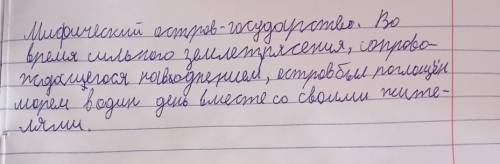 Мифический остров-государство. Во
время сильного землетрясения, сопрово-
ждащегося наводнением, остров был поглощён
морем в один день вместе со своими жите-
лями.